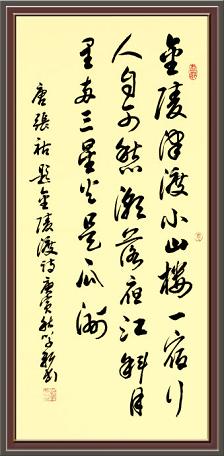 金陵津渡小山樓一宿行
人自可愁潮落夜江斜月
里两三星火是瓜洲
唐張祜題金陵渡詩庚寅秋